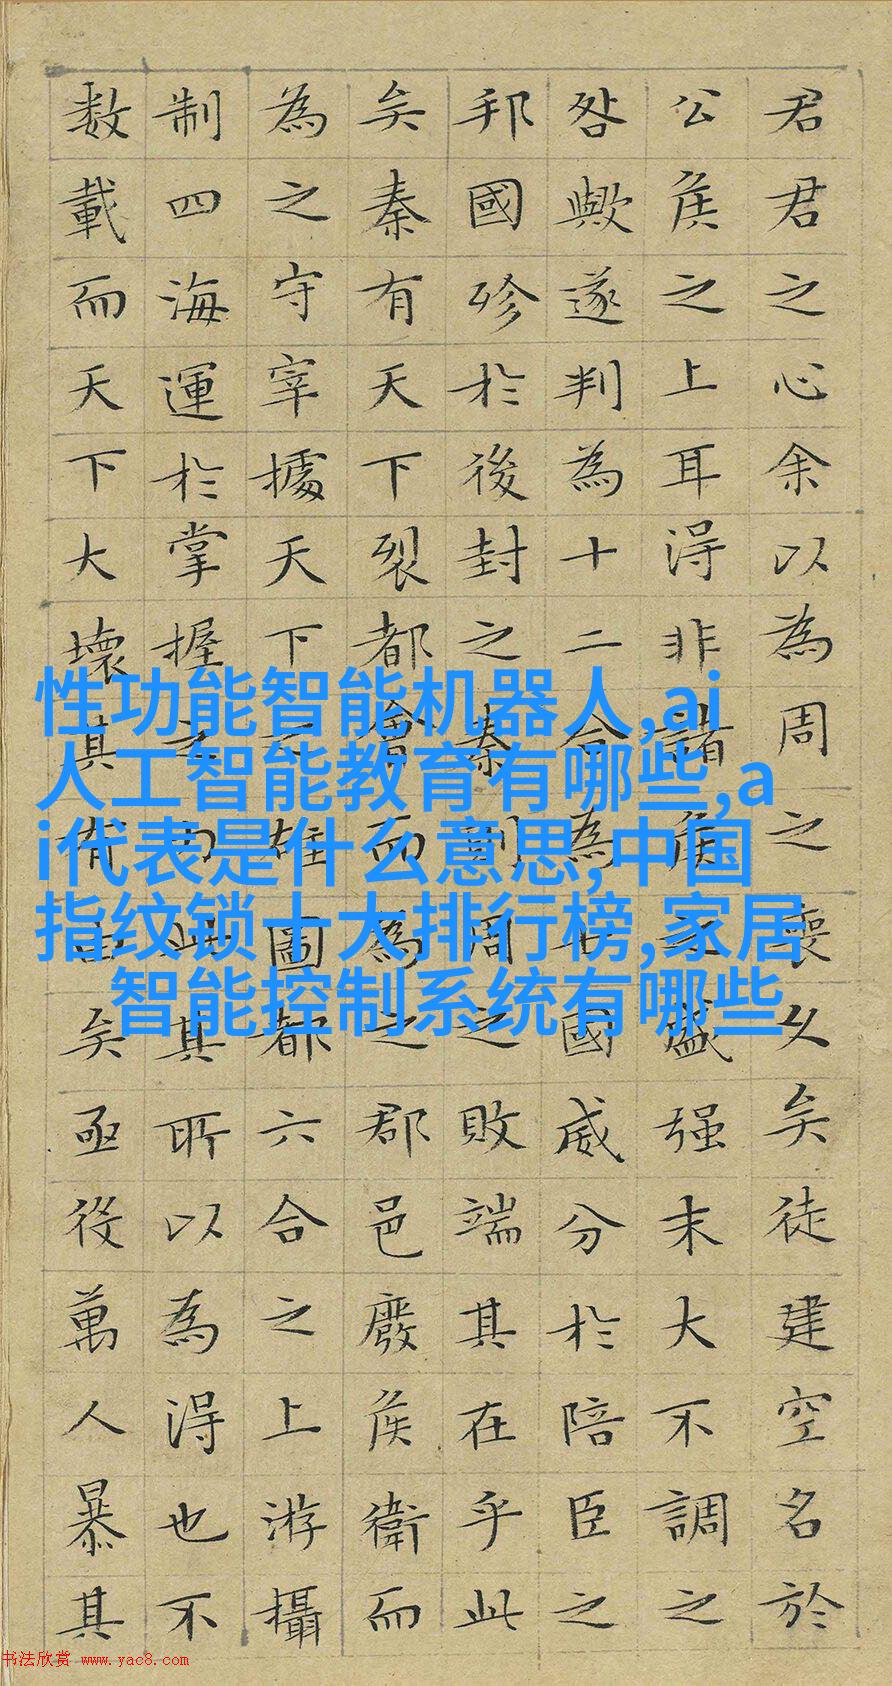 君君之心余以為周之喪久矣徒建空名於
公侯之上耳得非諸侯之盛强末大不調之
咎歟遂判為十二合為七國威分於陪臣之
邦國殄於後封之秦則周之敗端其在乎此
矣秦有天下裂都會而為之郡邑廢侯衛而
為之守宰據天下之雄圖都六合之上游攝
制四海運於掌握之內此其所以為得也不
数載而天下大壞其有由矣亟役萬人暴其
性功能智能机器人,ai
人工智能教育有哪些,a
i代表是什么意思,中国
指纹锁十大排行榜,家居
智能控制系统有哪些
书法欣赏 www.yac8.com